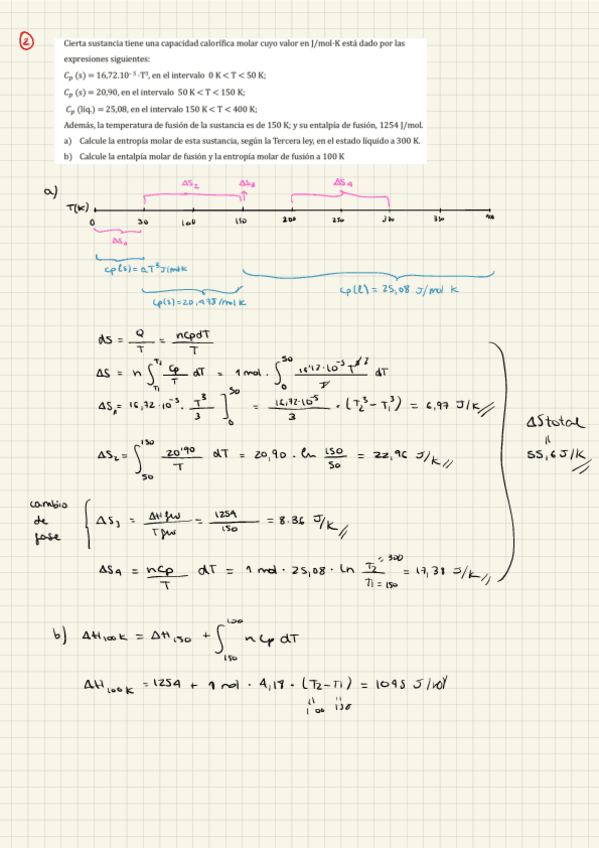 2
Cierta sustancia tiene una capacidad calorífica molar cuyo valor en J/mol·K está dado por las
expresiones siguientes:
Cp (s) = 16,72.10⁻⁵·T³, en el intervalo 0 K < T < 50 K;
Cp (s) = 20,90, en el intervalo 50 K < T < 150 K;
Cp (líq.) = 25,08, en el intervalo 150 K < T < 400 K;
Además, la temperatura de fusión de la sustancia es de 150 K; y su entalpía de fusión, 1254 J/mol.
a) Calcule la entropía molar de esta sustancia, según la Tercera ley, en el estado líquido a 300 K.
b) Calcule la entalpía molar de fusión y la entropía molar de fusión a 100 K
a)
ΔS₂ ΔS₃ ΔS₄
T(K)
0 50 100 150 200 250 350
ΔS₁
Cp(s) = a.T³ J/molK
Cp(l) = 25,08 J/mol K
dS = Q/T = nCpdT/T
ΔS = n ∫ Cp/T dT = 1 mol · ∫₀⁵⁰ 16'72·10⁻⁵ T³/T dT
ΔS₁ = 16,72·10⁻⁵ · T³/3 ]₀⁵⁰ = 16,72·10⁻⁵/3 · (T₂³ - T₁³) = 6,97 J/K
ΔS total
=
55,6 J/K
ΔS₂ = ∫₅₀¹⁵⁰ 20'90/T dT = 20,90 · ln 150/50 = 22,96 J/K
cambio
de
fase
ΔS₃ = ΔHfus/Tfus = 1254/150 = 8.36 J/K
ΔS₄ = nCp/T dT = 1 mol · 25,08 · ln T₂ = 300/T₁ = 150 = 17,38 J/K
b) ΔH₁₀₀K = ΔH₁₅₀ + ∫₁₅₀¹⁰⁰ nCp dT
ΔH₁₀₀K = 1254 + 1 mol · 4,18 · (T₂-T₁) = 1045 J/mol
100 150